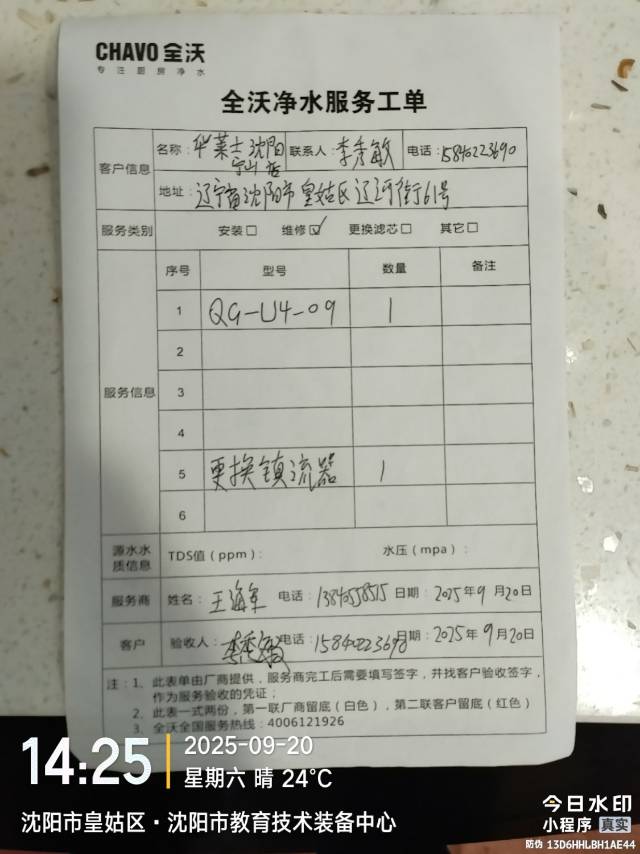 CHAVO 全沃
专注厨房净水
全沃净水服务工单
客户信息
名称: 华莱士 沈阳
联系人: 李秀敏
电话:
地址: 辽宁省沈阳市皇姑区辽河街61号
服务类别 安装□ 维修☑ 更换滤芯□ 其它□
服务信息
序号 型号 数量 备注
1 QG-U4-09 1
2
3
4
5 更换镇流器 1
6
源水水质信息 TDS值(ppm): 水压(mpa):
服务商 姓名: 王海军 电话: 日期: 2025年9月20日
客户 验收人: 李秀敏 电话: 日期: 2025年9月20日
注: 1、此表单由厂商提供,服务商完工后需要填写签字,并找客户验收签字,
作为服务验收的凭证;
2、此表一式两份,第一联厂商留底(白色),第二联客户留底(红色)
3、全沃全国服务热线: 4006121926
14:25
2025-09-20
星期六 晴 24℃
沈阳市皇姑区·沈阳市教育技术装备中心
今日水印
小程序 真实
防伪 13D6HHLBH1AE44